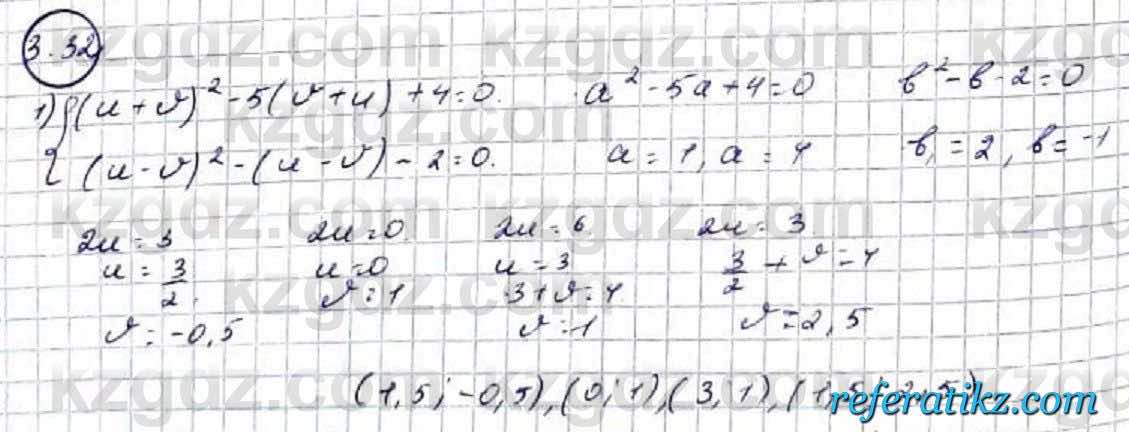 3.32
1) { (u + v)² - 5(v + u) + 4 = 0. a² - 5a + 4 = 0 b² - b - 2 = 0
(u - v)² - (u - v) - 2 = 0. a = 1, a = 4 b₁ = 2, b = -1
2u = 3 2u = 0. 2u = 6. 2u = 3
u = 3/2. u = 0 u = 3 3/2 + v = 4
v = -0,5 v = 1 3 + v = 4 v = 2,5
v = 1
(1,5; -0,5), (0; 1), (3; 1), (1,5; 2,5)
kzgdz.com
referatikz.com